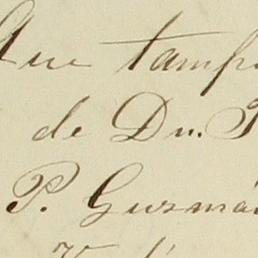 Que tamp
de Dn.
P. Guzmá